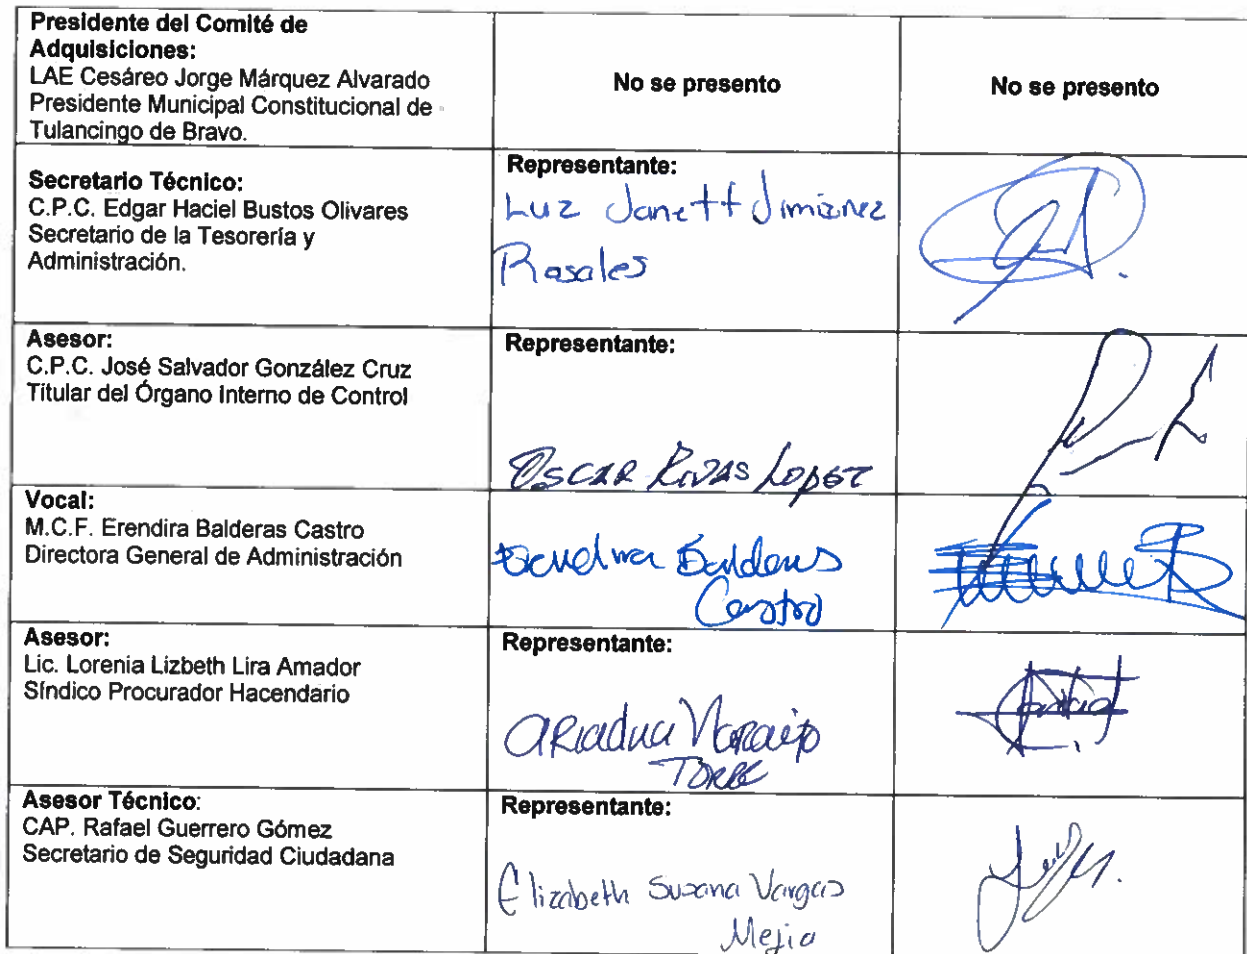 Presidente del Comité de
Adquisiciones:
LAE Cesáreo Jorge Márquez Alvarado
Presidente Municipal Constitucional de
Tulancingo de Bravo.
No se presento
No se presento
Secretario Técnico:
C.P.C. Edgar Haciel Bustos Olivares
Secretario de la Tesorería y
Administración.
Representante:
Luz Janett Jimienez
Rosales
Asesor:
C.P.C. José Salvador González Cruz
Titular del Órgano Interno de Control
Representante:
Oscar Rivas Lopez
Vocal:
M.C.F. Erendira Balderas Castro
Directora General de Administración
Erendira Balderas
Castro
Asesor:
Lic. Lorenia Lizbeth Lira Amador
Síndico Procurador Hacendario
Representante:
Ariadna
Asesor Técnico:
CAP. Rafael Guerrero Gómez
Secretario de Seguridad Ciudadana
Representante:
Elizabeth Susana Vargas
Mejia